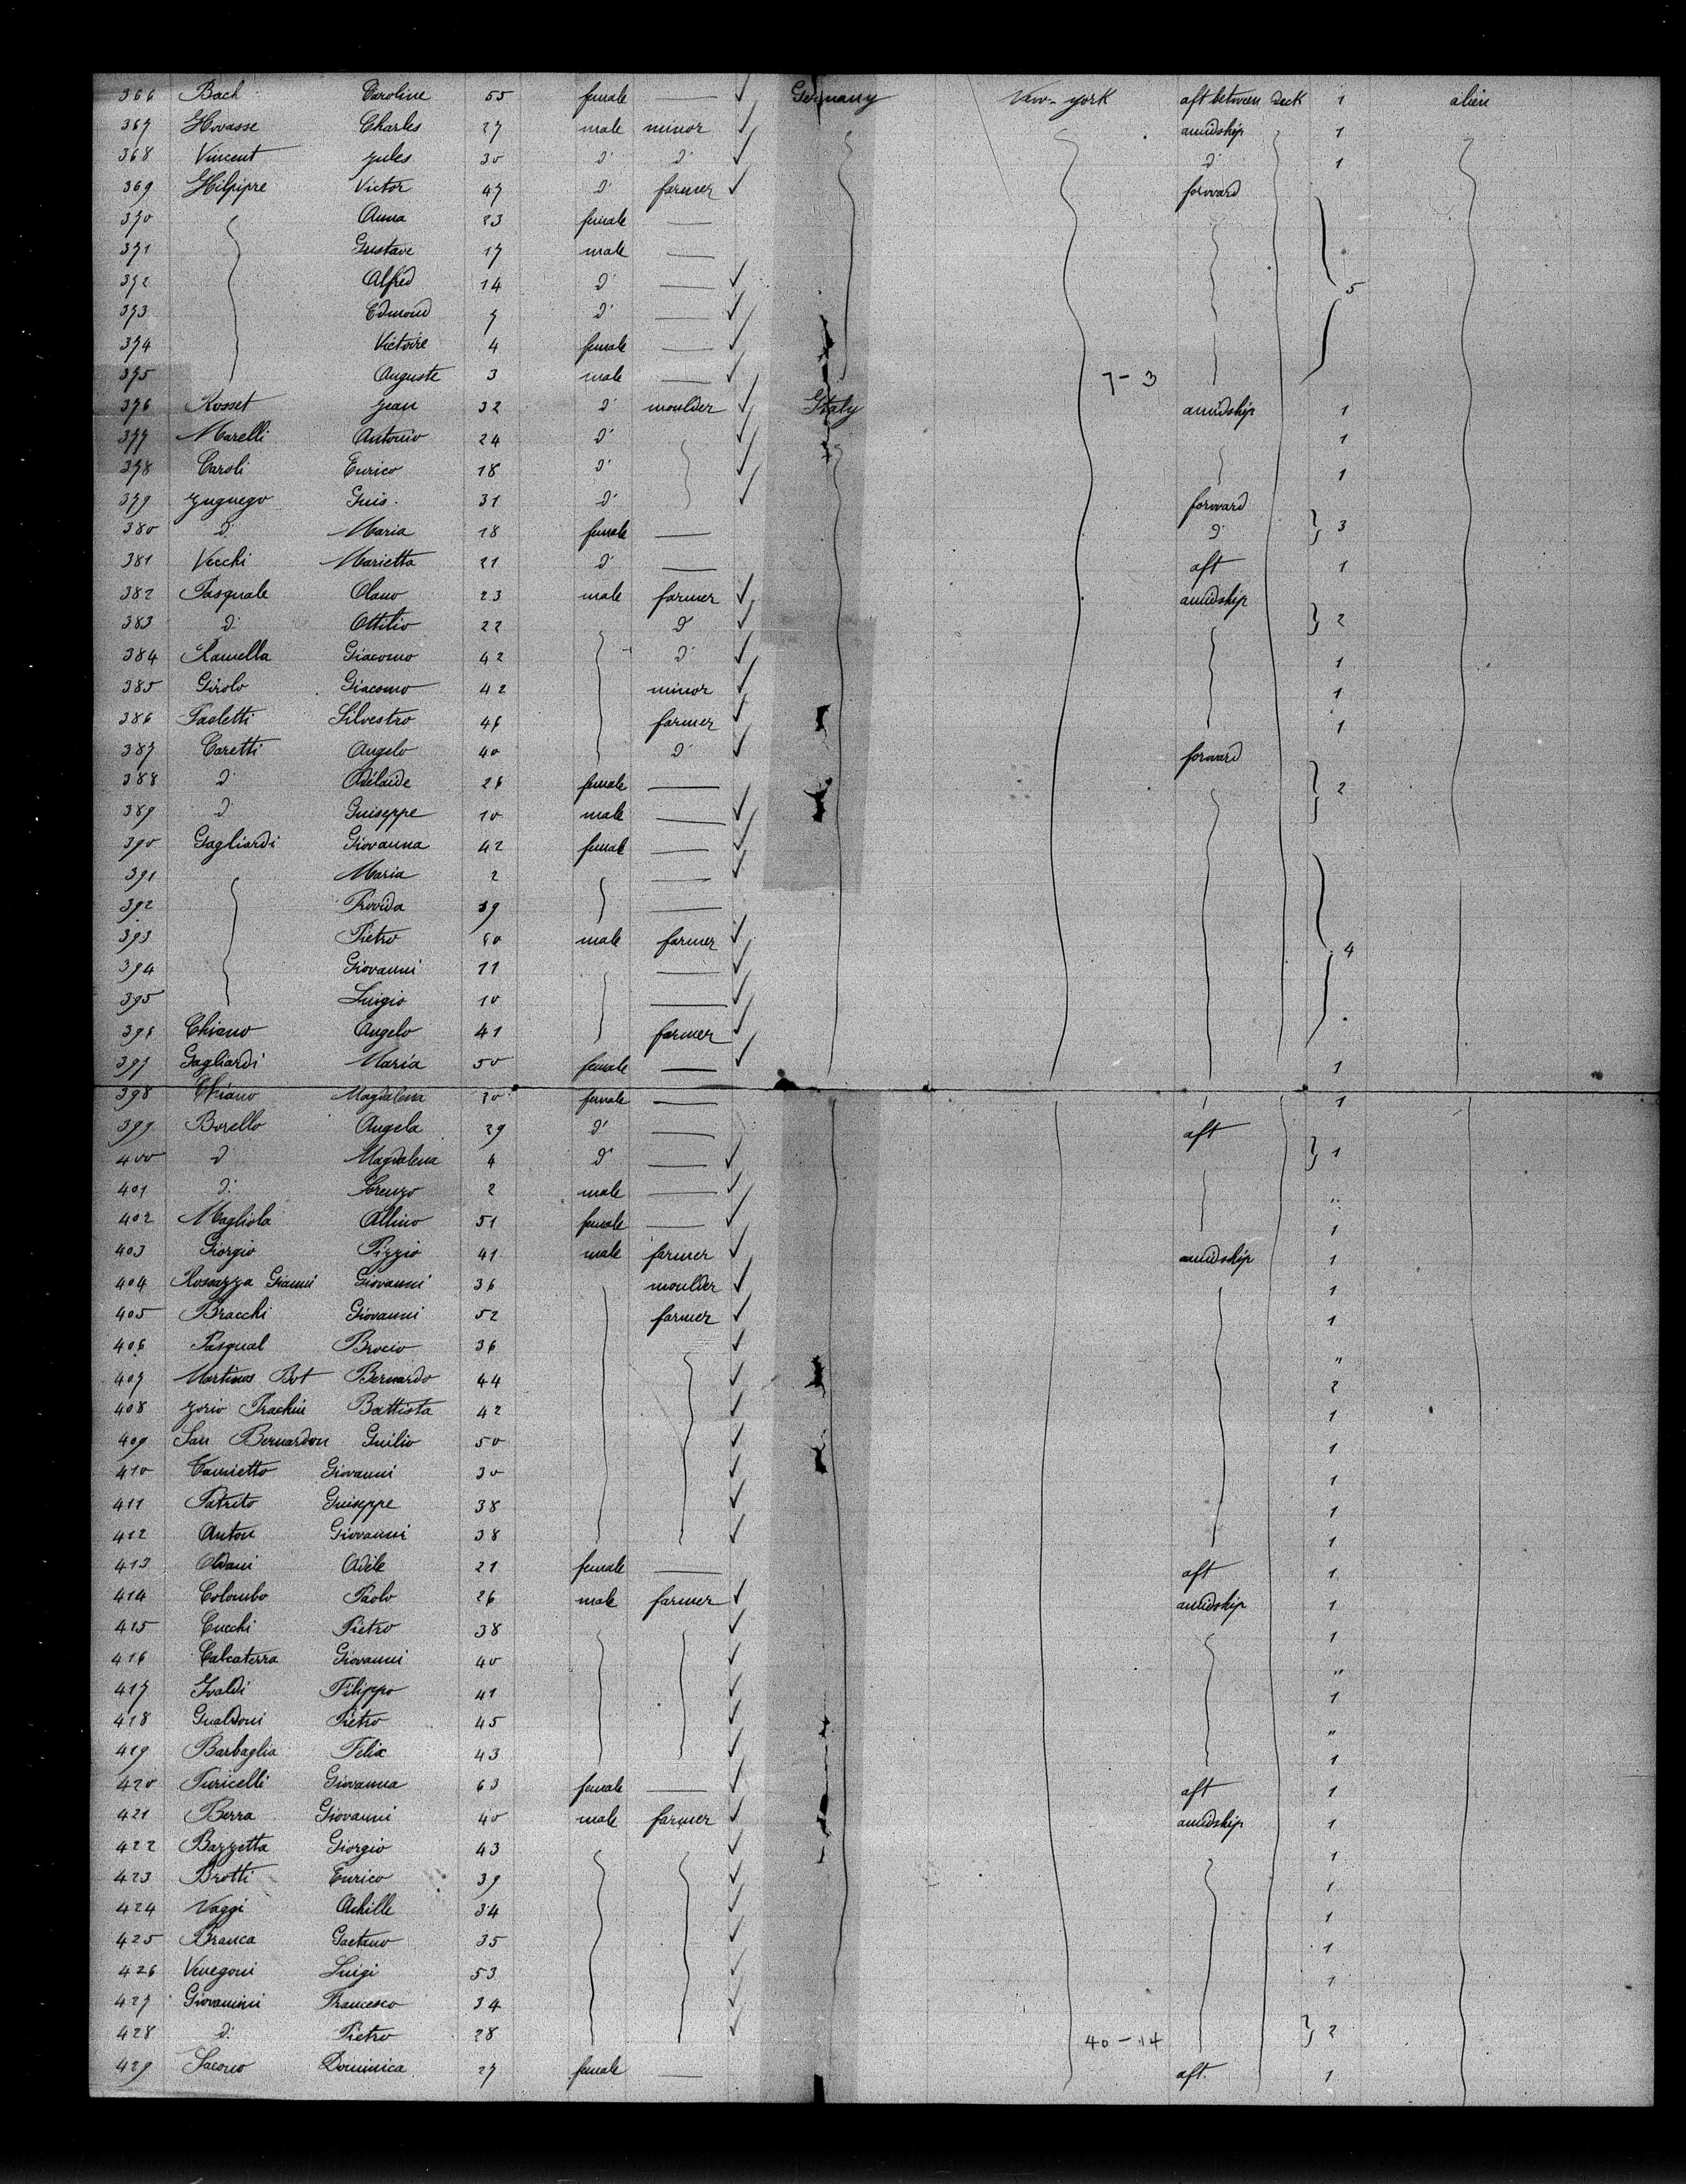 366 Bach Caroline 55 female — ✓ Germany New-york aft between deck 1 alien
367 Hovasse Charles 27 male minor ✓ amidship 1
368 Vincent Jules 30 d° d° ✓ d° 1
369 Hilpipre Victor 47 d° farmer ✓ forward
370 Anna 23 female —
371 Gustave 17 male —
372 Alfred 14 d° — ✓ 5
373 Edmond 7 d° — ✓
374 Victoire 4 female — ✓
375 Auguste 3 male — ✓ 7-3
376 Rosset Jean 32 d° moulder ✓ Italy amidship 1
377 Marelli Antonio 24 d° ✓ 1
378 Caroli Enrico 18 d° ✓ 1
379 Guis. 31 d° ✓ forward
380 d° Maria 18 female — d° 3
381 Vecchi Marietta 21 d° — aft 1
382 Pasquale Olano 23 male farmer ✓ amidship
383 d° Ottilio 22 d° ✓ 2
384 Ramella Giacomo 42 d° ✓ 1
385 Girolo Giacomo 42 minor ✓ 1
386 Paoletti Silvestro 46 farmer ✓ 1
387 Caretti Angelo 40 d° ✓ forward
388 d° Adélaïde 26 female — 2
389 d° Guiseppe 10 male — ✓
390 Gagliardi Giovanna 42 female — ✓
391 Maria 2 — ✓
392 Provida 19 —
393 Pietro farmer male ✓ 4
394 Giovanni 11 — ✓
395 Luigio 10 — ✓
396 Chiano Angelo 41 farmer ✓
397 Gagliardi Maria 50 female — ✓ 1
398 Chiano Magdalena 30 female — 1
399 Borello Angela 29 d° — aft
400 d° Magdalena 4 d° — ✓ 1
401 d° Lorenzo 2 male — ✓ "
402 Magliola Albino 51 female — ✓ 1
403 Giorgio Pizzio 41 male farmer ✓ amidship 1
404 Rosazza Gianni Giovanni 36 moulder ✓ 1
405 Bracchi Giovanni 52 farmer ✓ 1
406 Pasqual Brocio 36 ✓ "
407 Martinos Bot Bernardo 44 ✓ 2
408 Jorio Prachin Battista 42 ✓ 1
409 San Bernardon Guilio 50 ✓ 1
410 Camietto Giovanni 30 ✓ 1
411 Patrito Guiseppe 38 ✓ 1
412 Anton Giovanni 38 ✓ 1
413 Oldani Adèle 21 female — aft 1
414 Colombo Paolo 26 male farmer ✓ amidship 1
415 Cucchi Pietro 38 ✓ 1
416 Calcaterra Giovanni 40 ✓ "
417 Ivaldi Filippo 41 ✓ 1
418 Gualdoni Pietro 45 ✓ "
419 Barbaglia Felix 43 ✓ 1
420 Turicelli Giovanna 63 female — ✓ aft 1
421 Berra Giovanni 40 male farmer ✓ amidship 1
422 Bazzetta Giorgio 43 ✓ 1
423 Brotti Enrico 39 ✓ 1
424 Vaggi Achille 34 ✓ 1
425 Branca Gaetano 35 ✓ 1
426 Venegoni Luigi 53 ✓ 1
427 Giovannini Francesco 34 ✓
428 d° Pietro 28 ✓ 40-14 2
429 Sacono Dominica 27 female — aft. 1